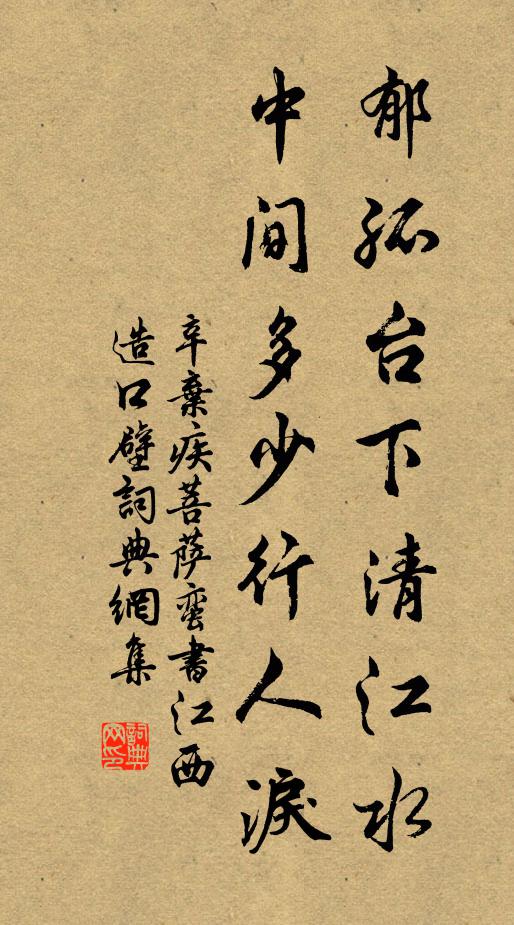 郁孤台下清江水
中间多少行人淚
辛棄疾菩萨蛮書江西
造口壁詞典網集
詞典
网印